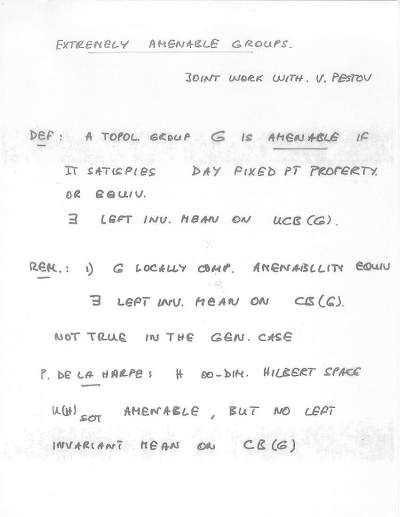 EXTREMELY AMENABLE GROUPS.
JOINT WORK WITH. V. PESTOV
DEF: A TOPOL GROUP G IS AMENABLE IF
IT SATISFIES DAY FIXED PT PROPERTY.
OR EQUIV.
∃ LEFT INV. MEAN ON UCB(G).
REM.: 1) G LOCALLY COMP. AMENABILITY EQUIV
∃ LEFT INV. MEAN ON CB(G).
NOT TRUE IN THE GEN. CASE
P. DE LA HARPE: H ∞-DIM. HILBERT SPACE
U(H)SOT AMENABLE, BUT NO LEFT
INVARIANT MEAN ON CB(G)